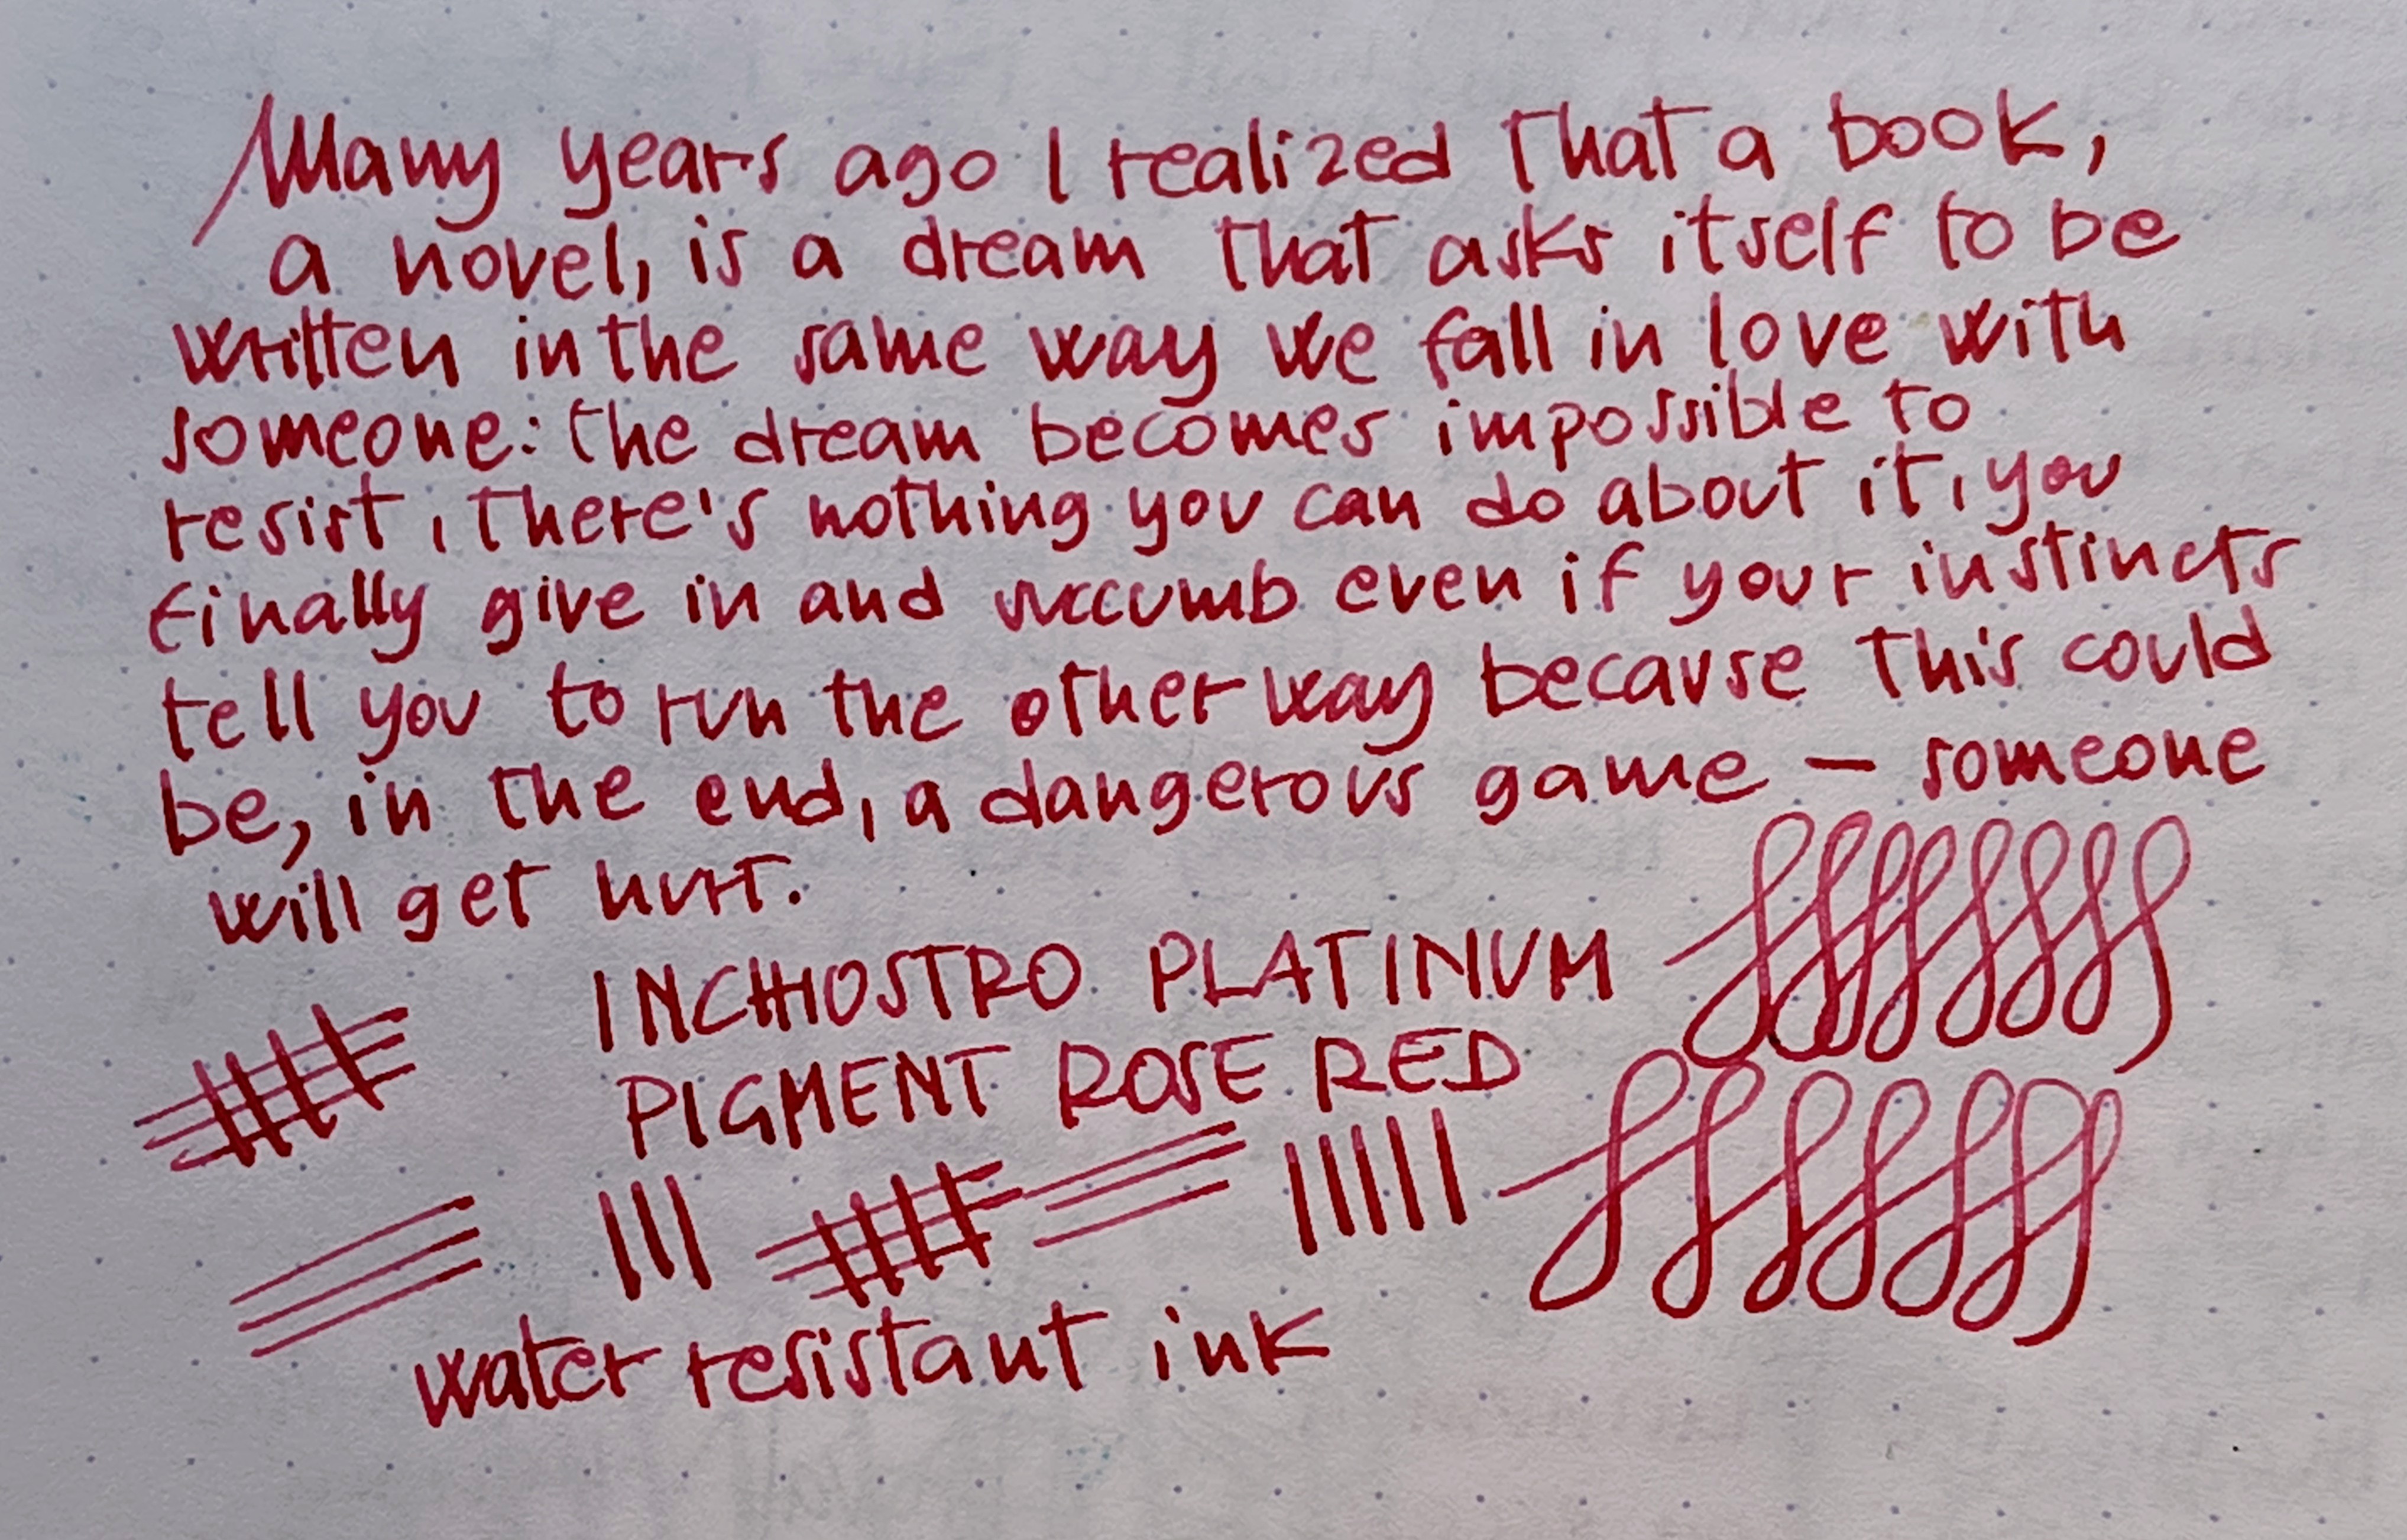 Many years ago I realized that a book,
a novel, is a dream that asks itself to be
written in the same way we fall in love with
someone: the dream becomes impossible to
resist, there's nothing you can do about it, you
finally give in and succumb even if your instincts
tell you to run the other way because this could
be, in the end, a dangerous game — someone
will get hurt.
INCHIOSTRO PLATINUM
PIGMENT ROSE RED
water resistant ink